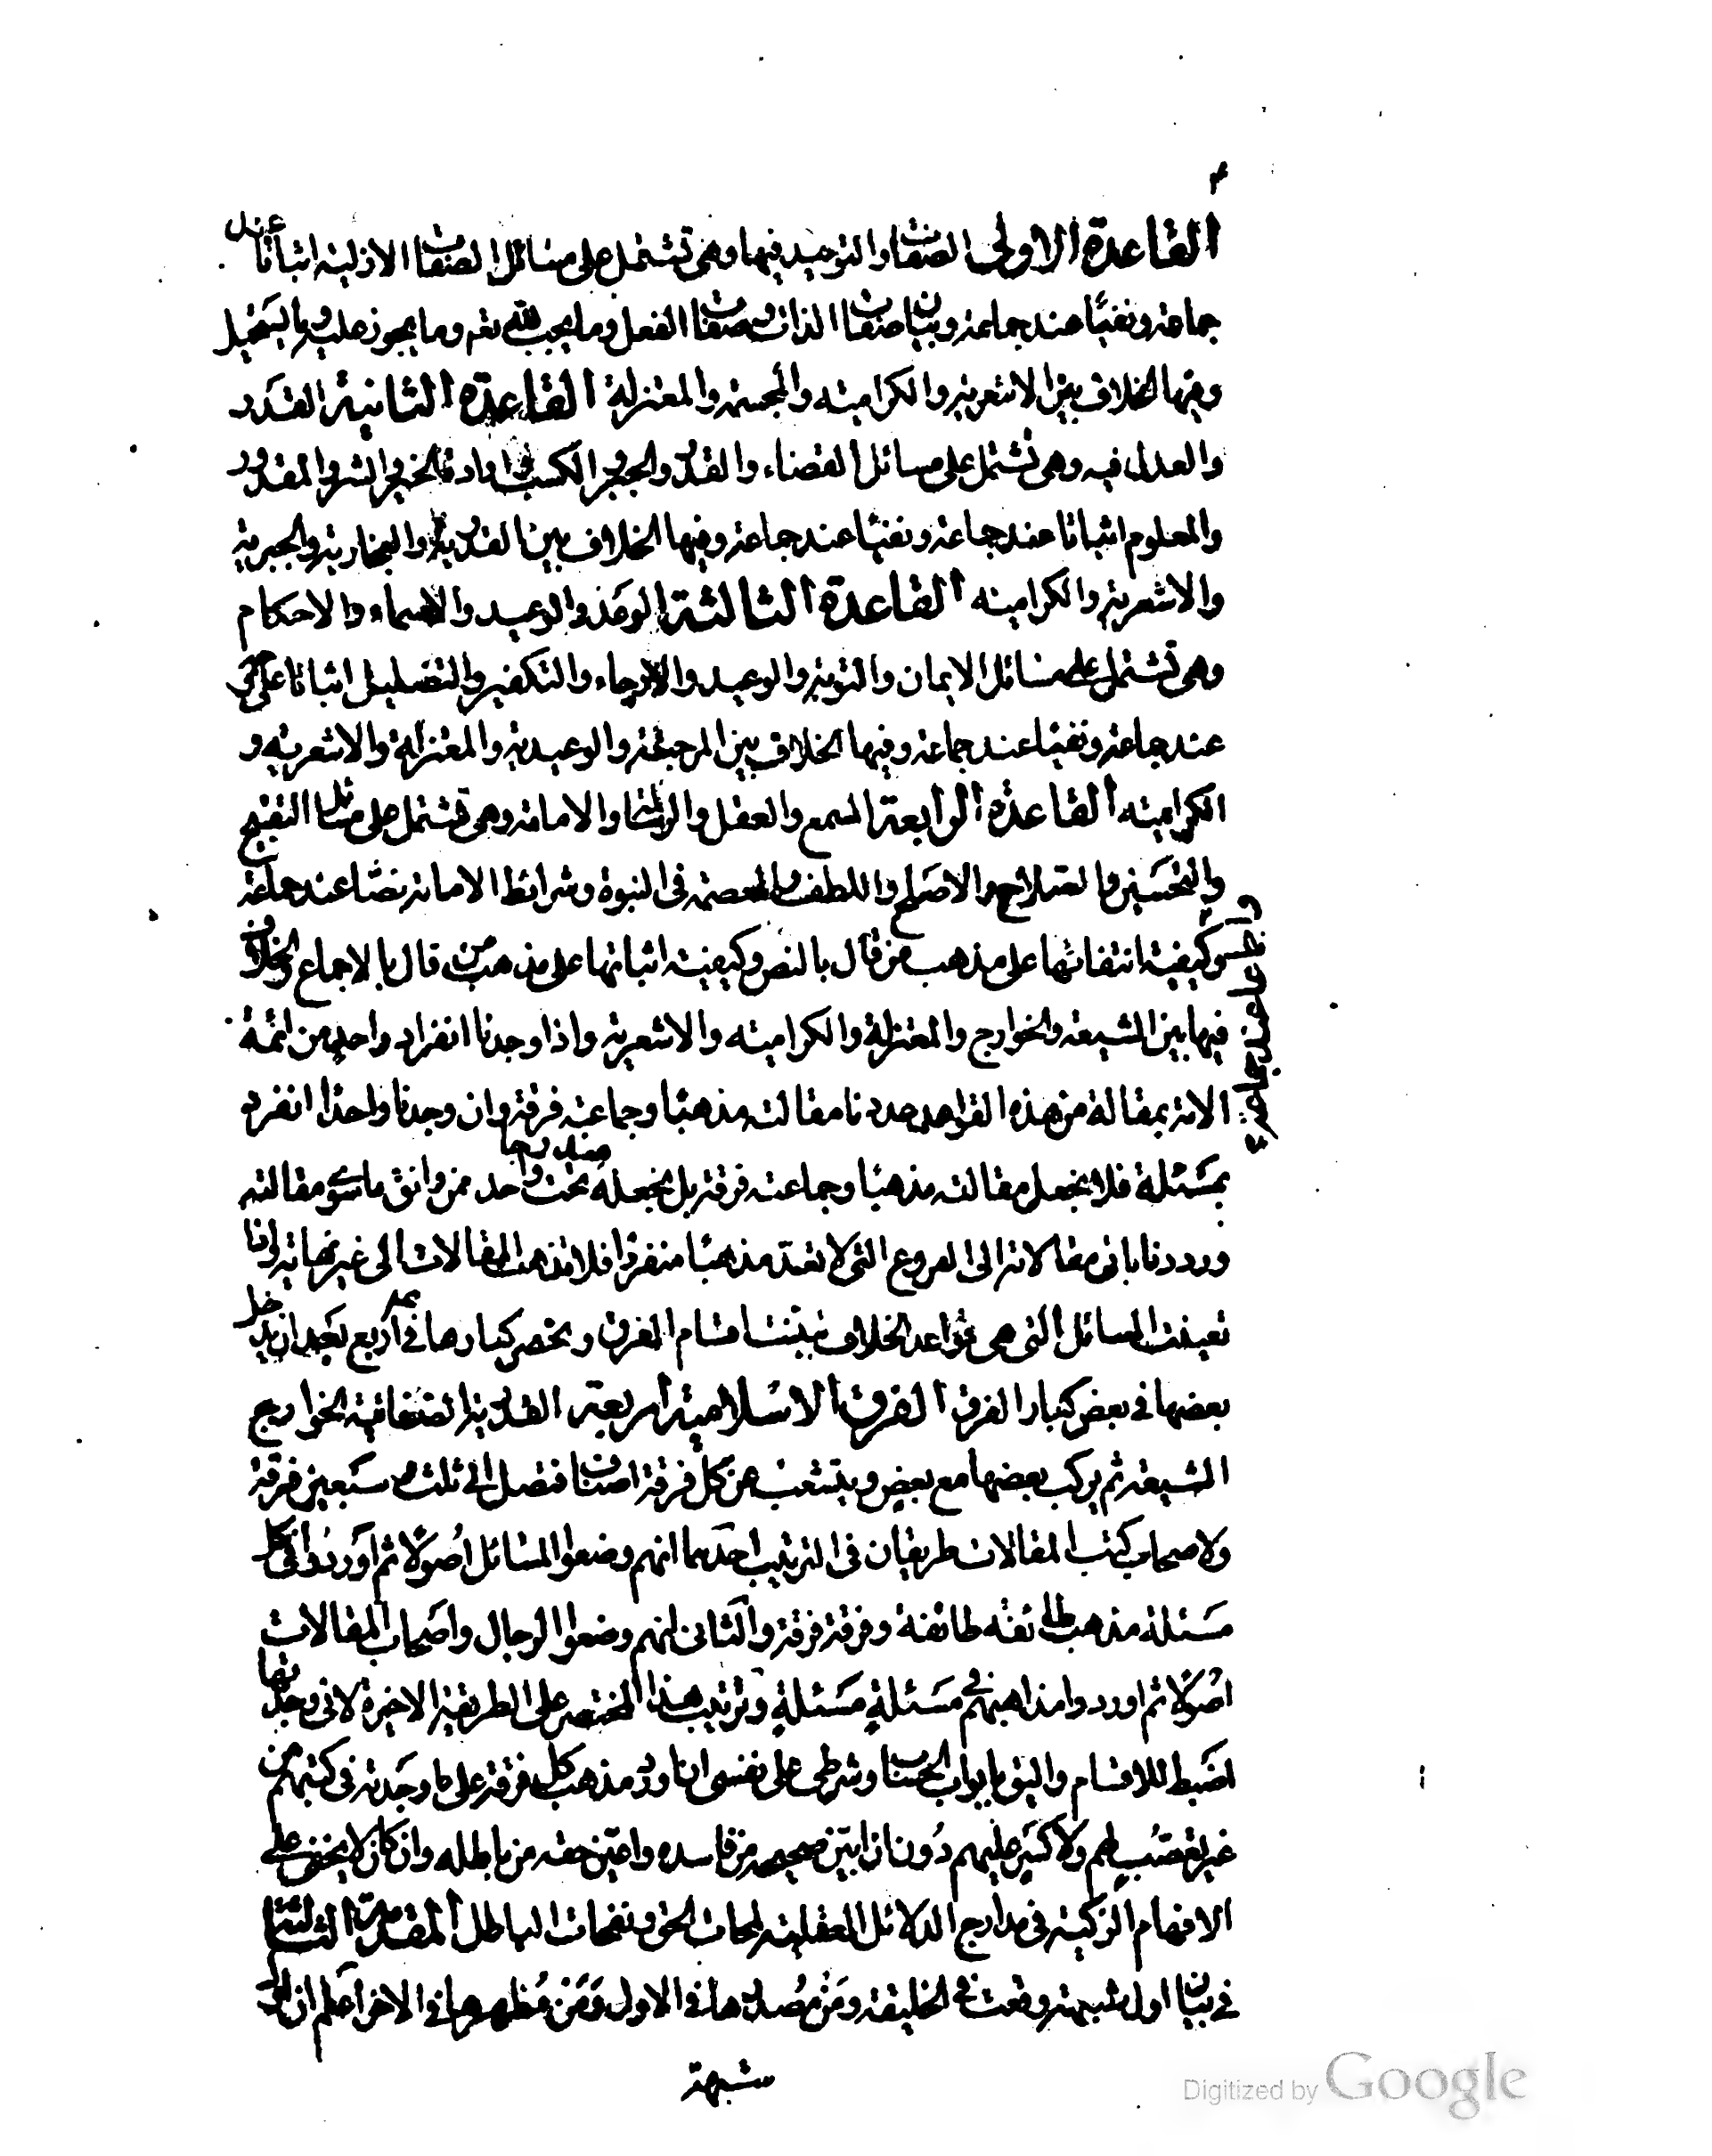 ٣
القاعدة الاولى الصفات والتوحيد فيها وهى تشتمل على مسائل الصفات الازلية اثباتا عند
جماعة ونفيًا عند جماعة وبيان صفات الذات وصفات الفعل وما يجب لله تعم وما يجوز عليه وما يستحيل
وفيها الخلاف بين الاشعرية والكرامية والمجسمة والمعتزلة القاعدة الثانية القدر
والعدل فيه وهى تشتمل على مسائل القضاء والقدر والجبر والكسب وارادة الخير والشر والمقدور
والمعلوم اثباتا عند جماعة ونفيًا عند جماعة وفيها الخلاف بين القدرية والنجارية والجبرية
والاشعرية والكرامية القاعدة الثالثة الوعد والوعيد والاسماء والاحكام
وهى تشتمل على مسائل الايمان والتوبة والوعيد والارجاء والتكفير والتضليل اثباتا على
عند جماعة ونفيًا عند جماعة وفيها الخلاف بين المرجئة والوعيدية والمعتزلة والاشعرية و
الكرامية القاعدة الرابعة السمع والعقل والرسالة والامامة وهى تشتمل على مسائل التقبيح
والتحسين والصلاح والاصلح واللطف والعصمة فى النبوة وشرائط الامامة نصًا عند جماعة
واجماعا عند جماعة
وكيفية انتقالها على مذهب من قال بالنص وكيفية اثباتها على مذهب من قال بالاجماع والخلاف
فيها بين الشيعة والخوارج والمعتزلة والكرامية والاشعرية واذا وجدنا انفراد واحد من ائمة
الامة بمقالة من هذه القواعد عددنا مقالته مذهبًا وجماعته فرقة وان وجدنا واحدًا انفرد
بمسئلة فلا نجعل مقالته مذهبًا وجماعته فرقة بل نجعله مندرجا تحت واحد ممن وافق ما سوى مقالته
ورددنا باقى مقالاته الى الفروع التى لا تعد مذهبًا منفردًا فلا تذهب المقالات الى غير نهاية فاذا
تعينت المسائل التى هى قواعد الخلاف تبينت اقسام الفرق وانحصر كبارها فى اربع بعد ان تداخل
بعضها فى بعض كبار الفرق الفرق الاسلامية اربعة القدرية الصفاتية الخوارج
الشيعة ثم يركب بعضها مع بعض ويتشعب عن كل فرقة اصناف فتصل الى ثلث وسبعين فرقة
ولاصحاب كتب المقالات طريقان فى الترتيب احدهما انهم وضعوا المسائل اصولًا ثم اوردوا فى كل
مسئلة مذهب طائفة طائفة وفرقة فرقة والثانى انهم وضعوا الرجال واصحاب المقالات
اصولًا ثم اوردوا مذاهبهم فى مسئلةٍ مسئلةٍ وترتيب هذا المختصر على الطريقة الاخيرة لانى وجدتها
اضبط للاقسام واليق بابواب الحساب وشرطى على نفسى ان اورد مذهب كل فرقة على ما وجدته فى كتبهم من
غير تعصب لهم ولا كسر عليهم دون ان ابين صحيحه من فاسده واعين حقه من باطله وان كان لا يخفى على
الافهام الزكية فى مدارج الدلائل العقلية لمحات الحق ونفحات الباطل المقدمة الثالثة
فى بيان اول شبهة وقعت فى الخليقة ومن مصدرها فى الاول ومن مظهرها فى الاخر اعلم ان اول
شبهة
Digitized by Google